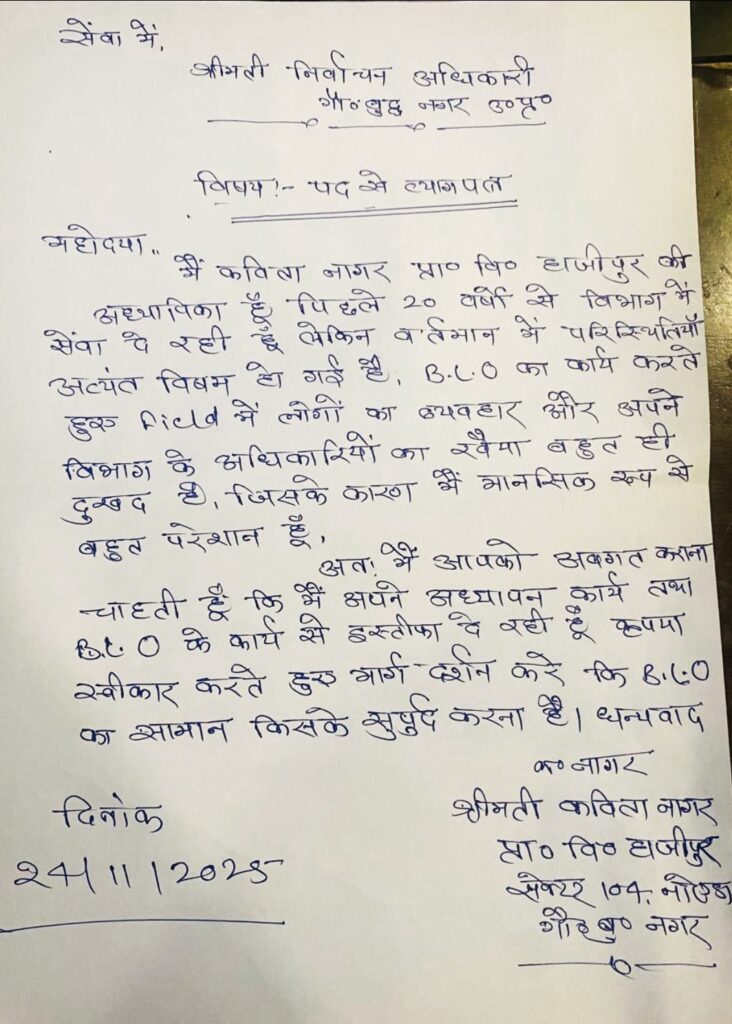 सेंवा में,
श्रीमती निर्वाचन अधिकारी
गौ० बुद्ध नगर उ०प्र०
विषय:- पद से त्यागपत्र
महोदया,,
मैं कविता नागर प्रा० वि० हाजीपुर की
अध्यापिका हूँ पिछले 20 वर्षो से विभाग में
सेंवा दे रही हूँ लेकिन वर्तमान में परिस्थितियाँ
अत्यंत विषम हो गई है, B.L.O का कार्य करते
हुए Field में लोगों का व्यवहार और अपने
विभाग के अधिकारियों का रवैया बहुत ही
दुखद है, जिसके कारण मैं मानसिक रूप से
बहुत परेशान हूँ,
अत: मैं आपको अवगत कराना
चाहती हूँ कि मैं अपने अध्यापन कार्य तथा
B.L.O के कार्य से इस्तीफा दे रही हूँ कृपया
स्वीकार करते हुए मार्ग दर्शन करे कि B.L.O
का सामान किसके सुपुर्द करना है। धन्यवाद
क० नागर
श्रीमती कविता नागर
प्रा० वि० हाजीपुर
सेक्टर 104, नोएडा
गौ० बु० नगर
दिनांक
24/11/2025